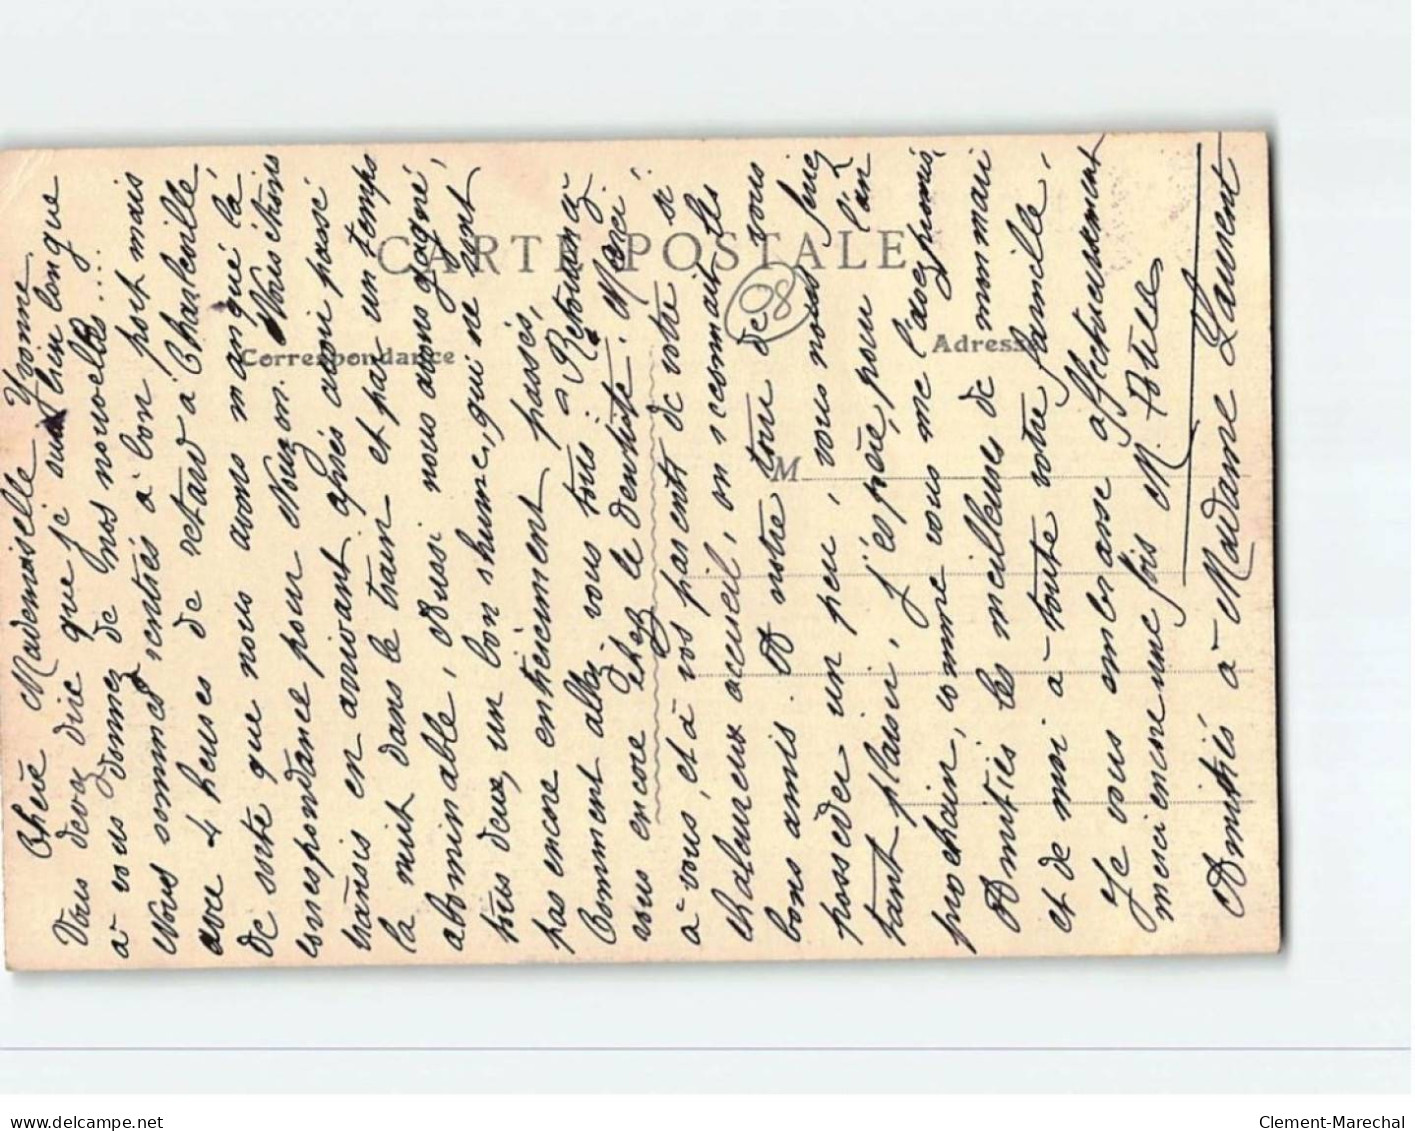 Chère Mademoiselle Yvonne
Vous devez dire que je suis bien longue
à vous donnez de nos nouvelles....
Nous sommes rentrés à bon port mais
avec 4 heures de retard à Charleville
de sorte que nous avons manqué la
correspondance pour Nouzon. Nous étions
transis en arrivant après avoir passé
la nuit dans le train et par un temps
abominable, aussi nous avons gagné,
tous deux, un bon rhume, qui ne sont
pas encore entièrement passés,
Comment allez vous tous? Retournez
vous encore chez le dentiste? Merci
à vous, et à vos parents de votre si
chaleureux accueil, on reconnait les
bons amis. A notre tour de vous
posseder un peu, vous nous fûez
tant plaisir, j'espère, pour l'an
prochain, comme vous me l'avez promis,
Amitiés les meilleures de mon mari
et de moi à toute votre famille,
Je vous embrasse affectueusement
merci encore une fois M.
Amitiés à Madame Laurent
CARTE POSTALE
Correspondance
Adresse
M
08
delcampe.net
Clement-Marechal